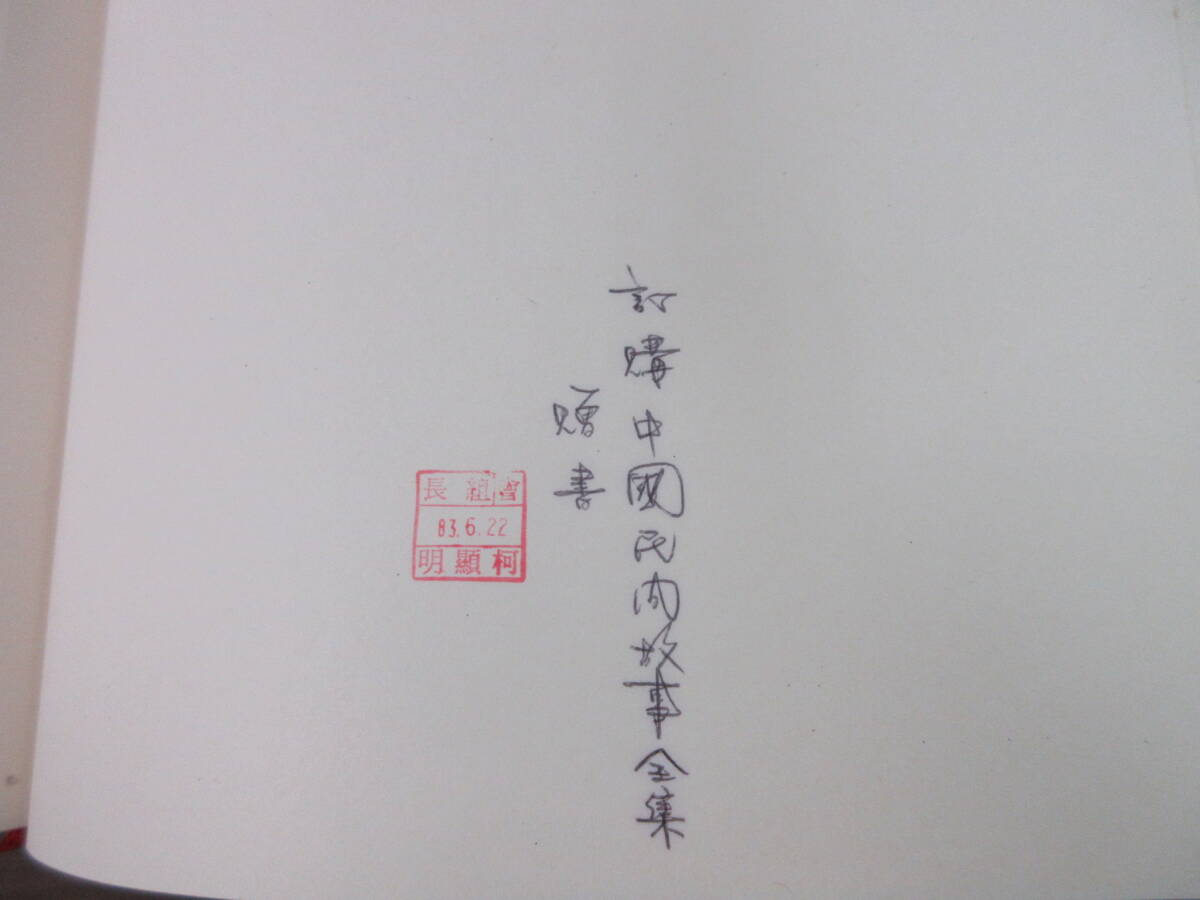 訂購中國民間故事全集
贈書
長組會
83.6.22
明顯柯